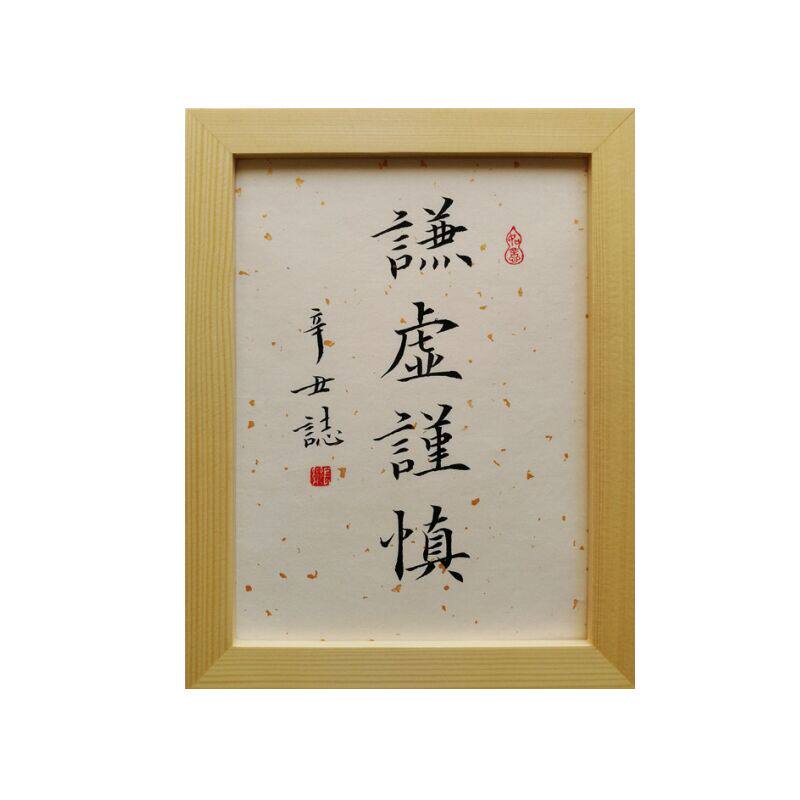 謙虛謹慎
辛丑誌